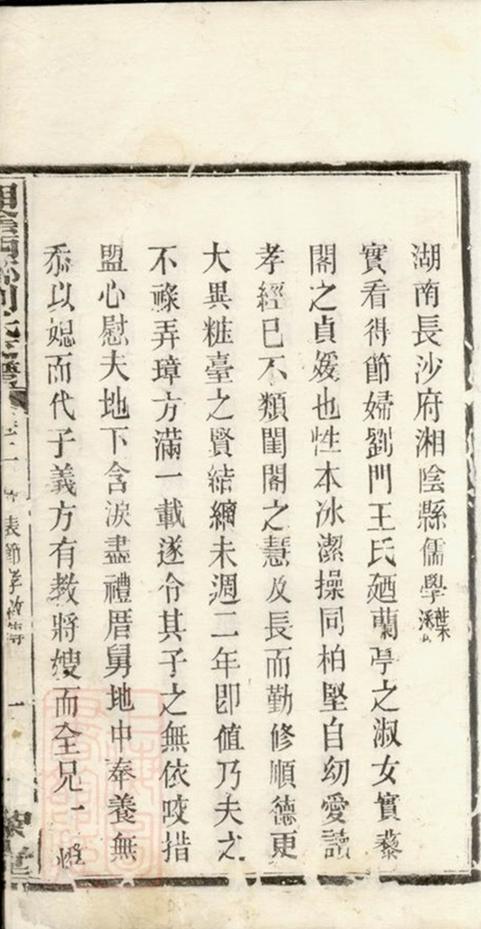 湖南長沙府湘陰縣儒學葉
實看得節婦劉門王氏廼蘭亭之淑女實藜
閣之貞媛也性本冰潔操同柏堅自幼愛讀
孝經已不類閨閣之慧及長而勤修順德更
大異粧臺之賢結縭未週二年即值乃夫之
不祿弄璋方滿一載遂令其子之無依咬措
盟心慰夫地下含淚盡禮厝舅地中奉養無
忝以媳而代子義方有教將嫂而全兄一
表節孝